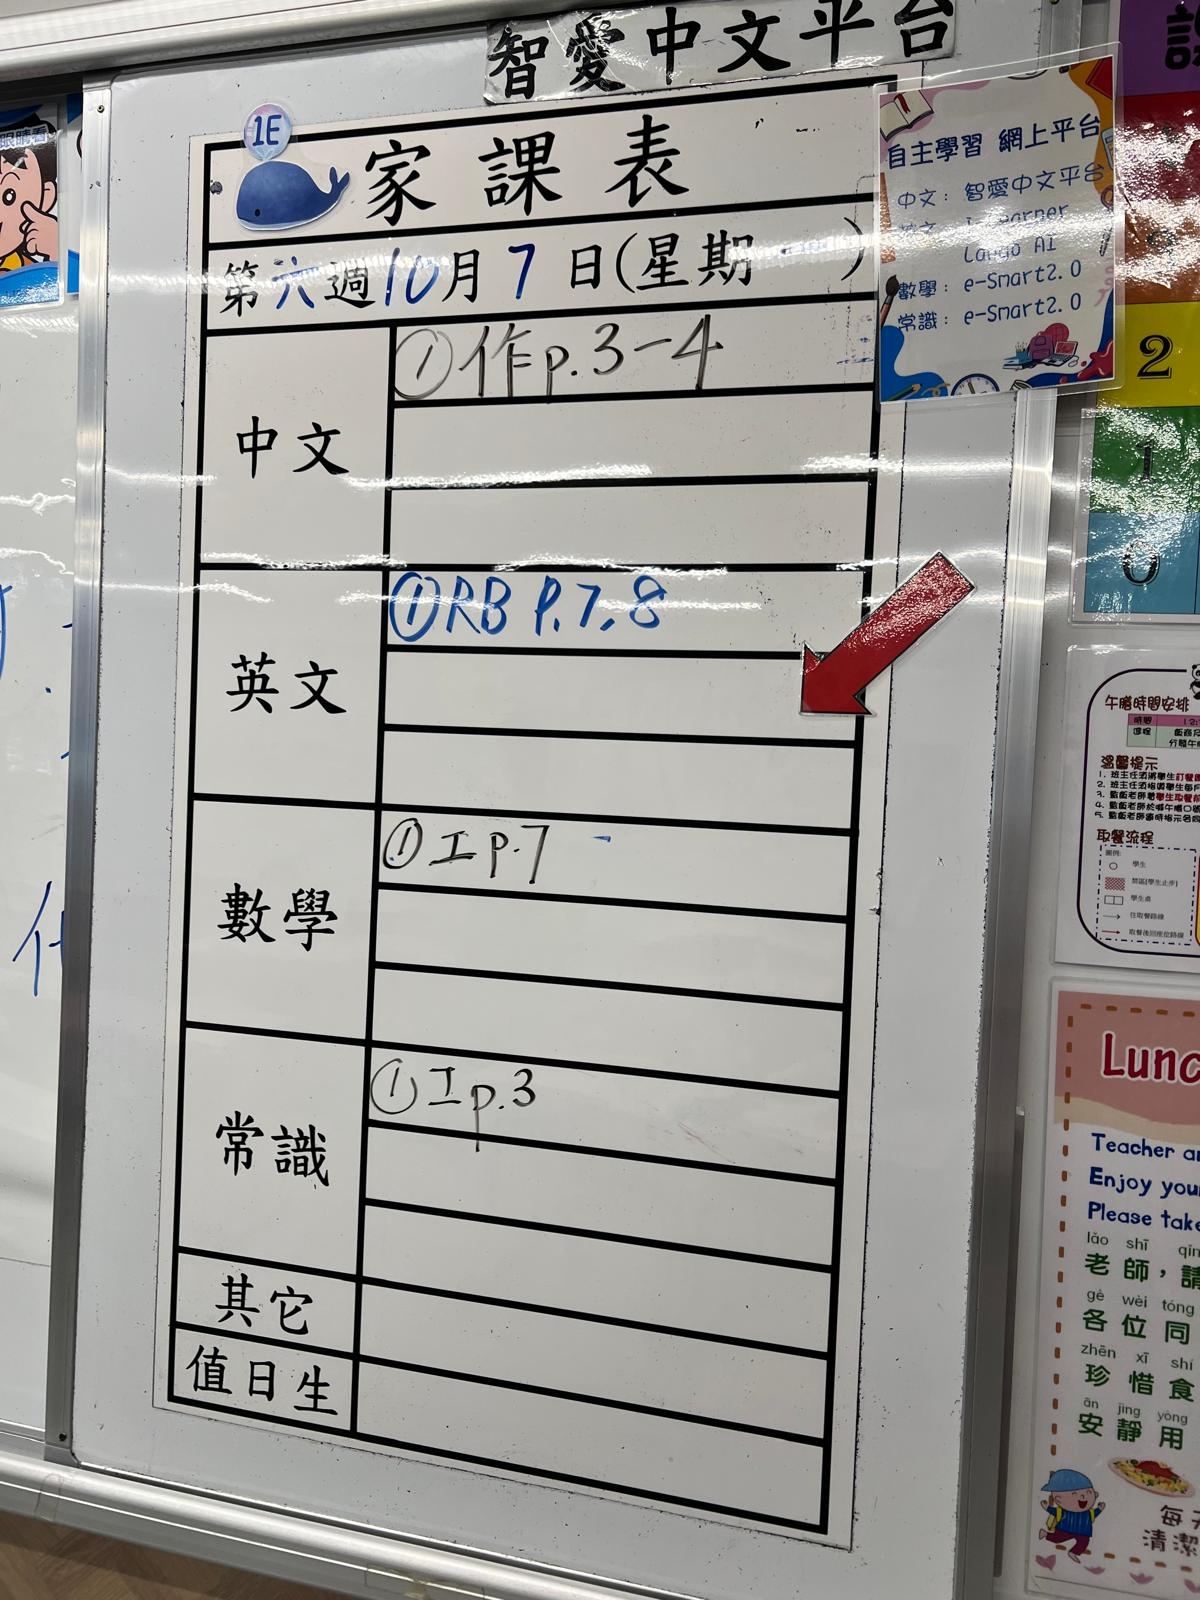 智愛中文平台
1E
家課表
第六週10月7日(星期一)
中文
①作p.3-4
英文
①RB P.7,8
數學
①工p.7
常識
①工p.3
其它
值日生
自主學習 網上平台
中文：智愛中文平台
Lango AI
數學：e-Smart2.0
常識：e-Smart2.0
2
1
0
午膳時間安排
時間
溫馨提示
取餐流程
學生
禁區(學生止步)
學生桌
往取餐路線
取餐後回座位路線
Lunc
Teacher an
Enjoy you
Please take
lǎo shī qǐn
老師，請
gè wèi tóng
各位同
zhēn xī shí
珍惜食
ān jìng yòng
安靜用
每
清潔